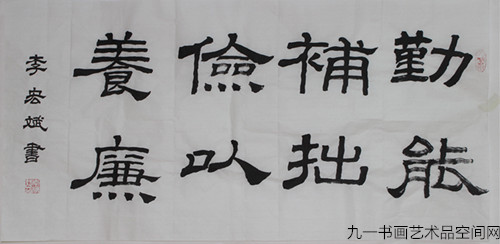 勤能
補拙
儉以
養廉
李宏斌書
九一书画艺术品空间网